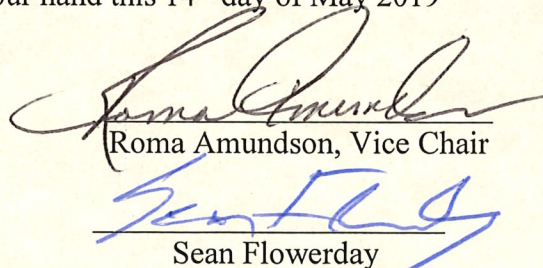 our hand this 14 day of May 2019
Roma Amundson
Roma Amundson, Vice Chair
Sean Flowerday
Sean Flowerday